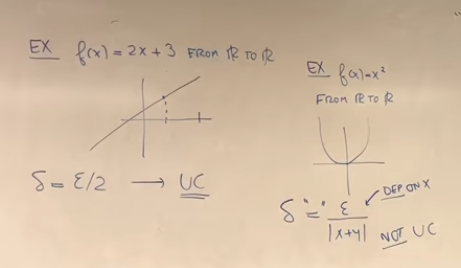 EX f(x) = 2x + 3 FROM ℝ TO ℝ
δ = ε/2 → UC
EX f(x)=x²
FROM ℝ TO ℝ
δ "=" ε / |x+y|
DEP ON X
NOT UC